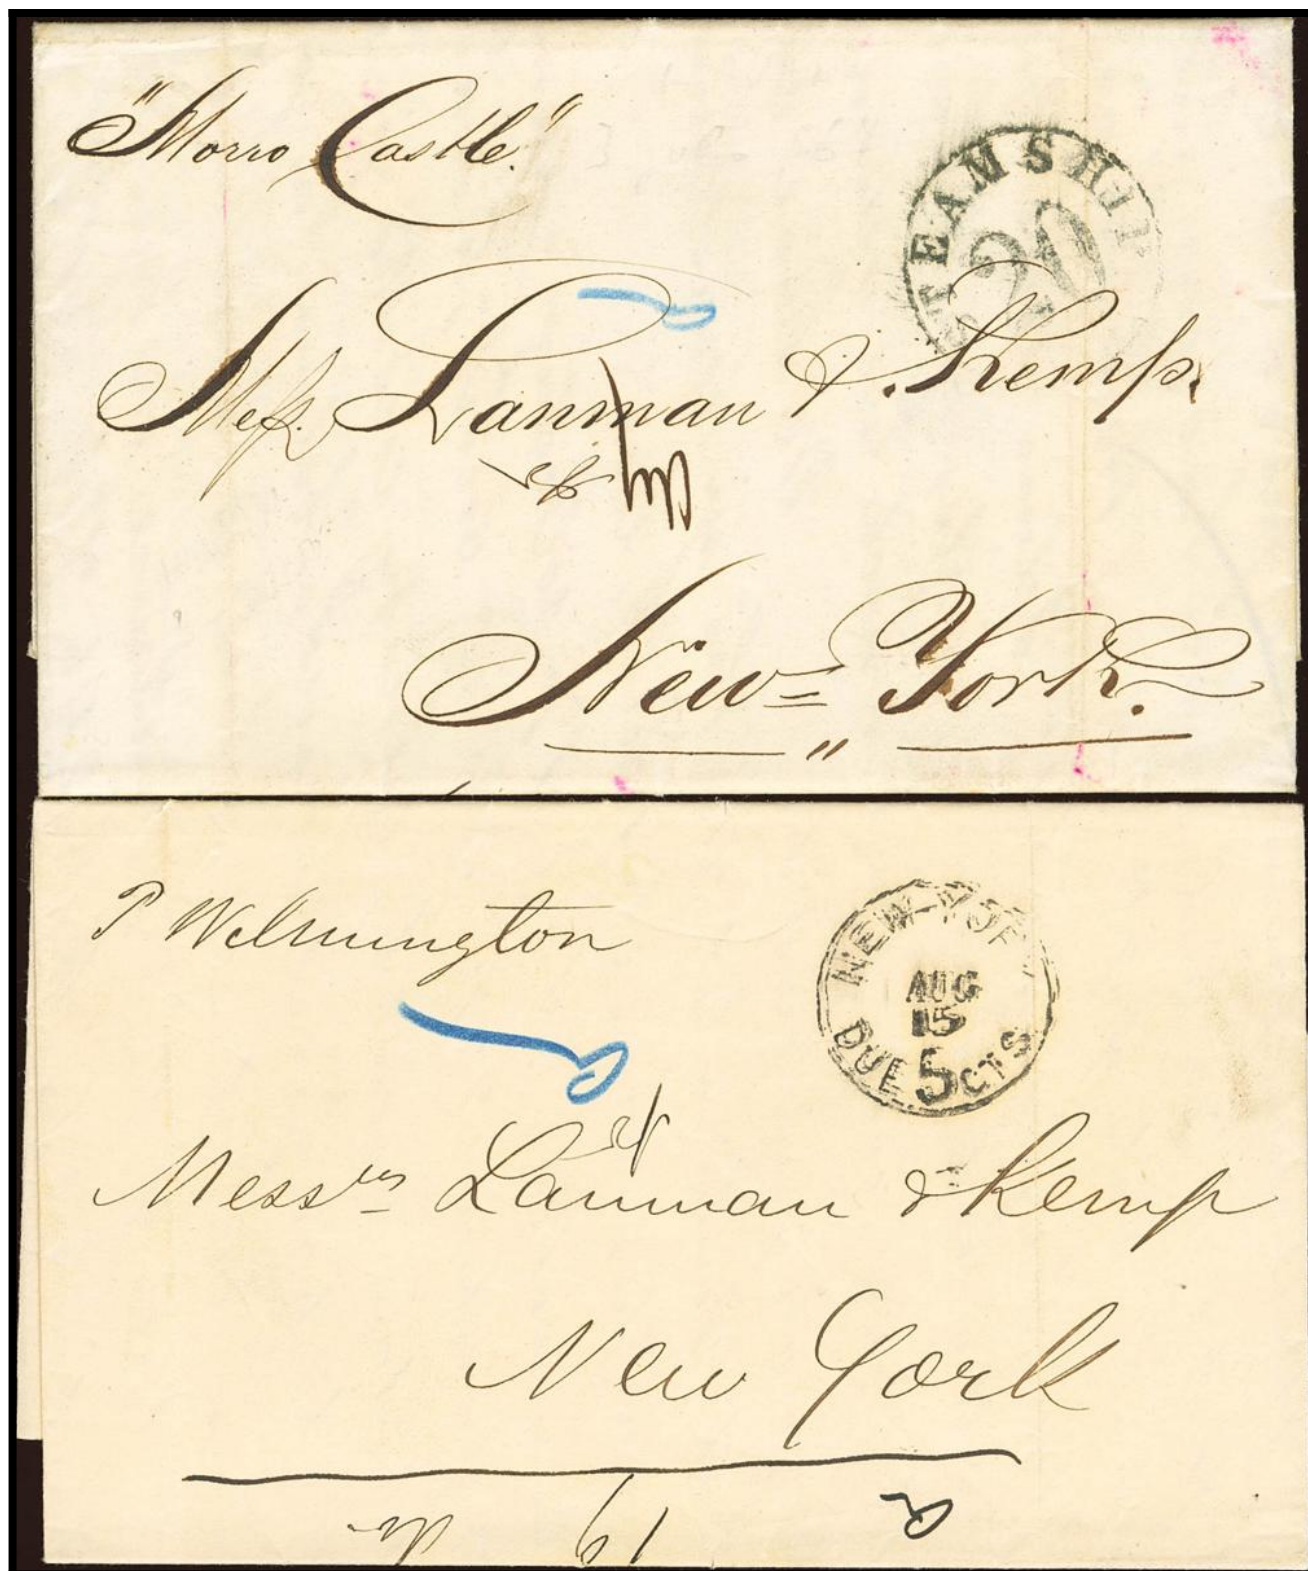 "Morro Castle."
STEAMSHIP
20
Mess. Lanman & Kemp.
New=York.
"
P Wilmington
NEW YORK
AUG
15
DUE 5 CTS
Mess rs Lanman & Kemp
New York